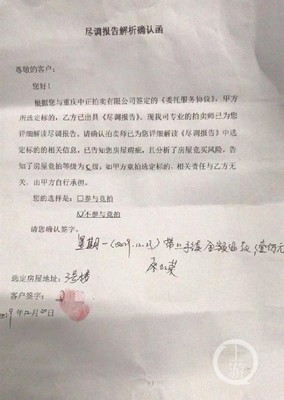 尽调报告解析确认函
尊敬的客户：
您好！
根据您与重庆中正拍卖有限公司签定的《委托服务协议》，甲方
所选定标的，乙方已出具《尽调报告》。现我司专业的拍卖师已为您
详细解读尽调报告。请确认拍卖师已为您详细解读《尽调报告》中选
定标的的相关信息，已告知您房屋瑕疵，且分析了房屋竞买风险。告
知了房屋竞拍等级为C级，如甲方竞拍选定标的，相关责任与乙方无
关，由甲方自行承担。
您的选择是：□参与竞拍
☑不参与竞拍
请您确认签字。
星期一(2019.12.23)带上手续全额退款
选定房屋地址：
客户签字：
2019年12月20日